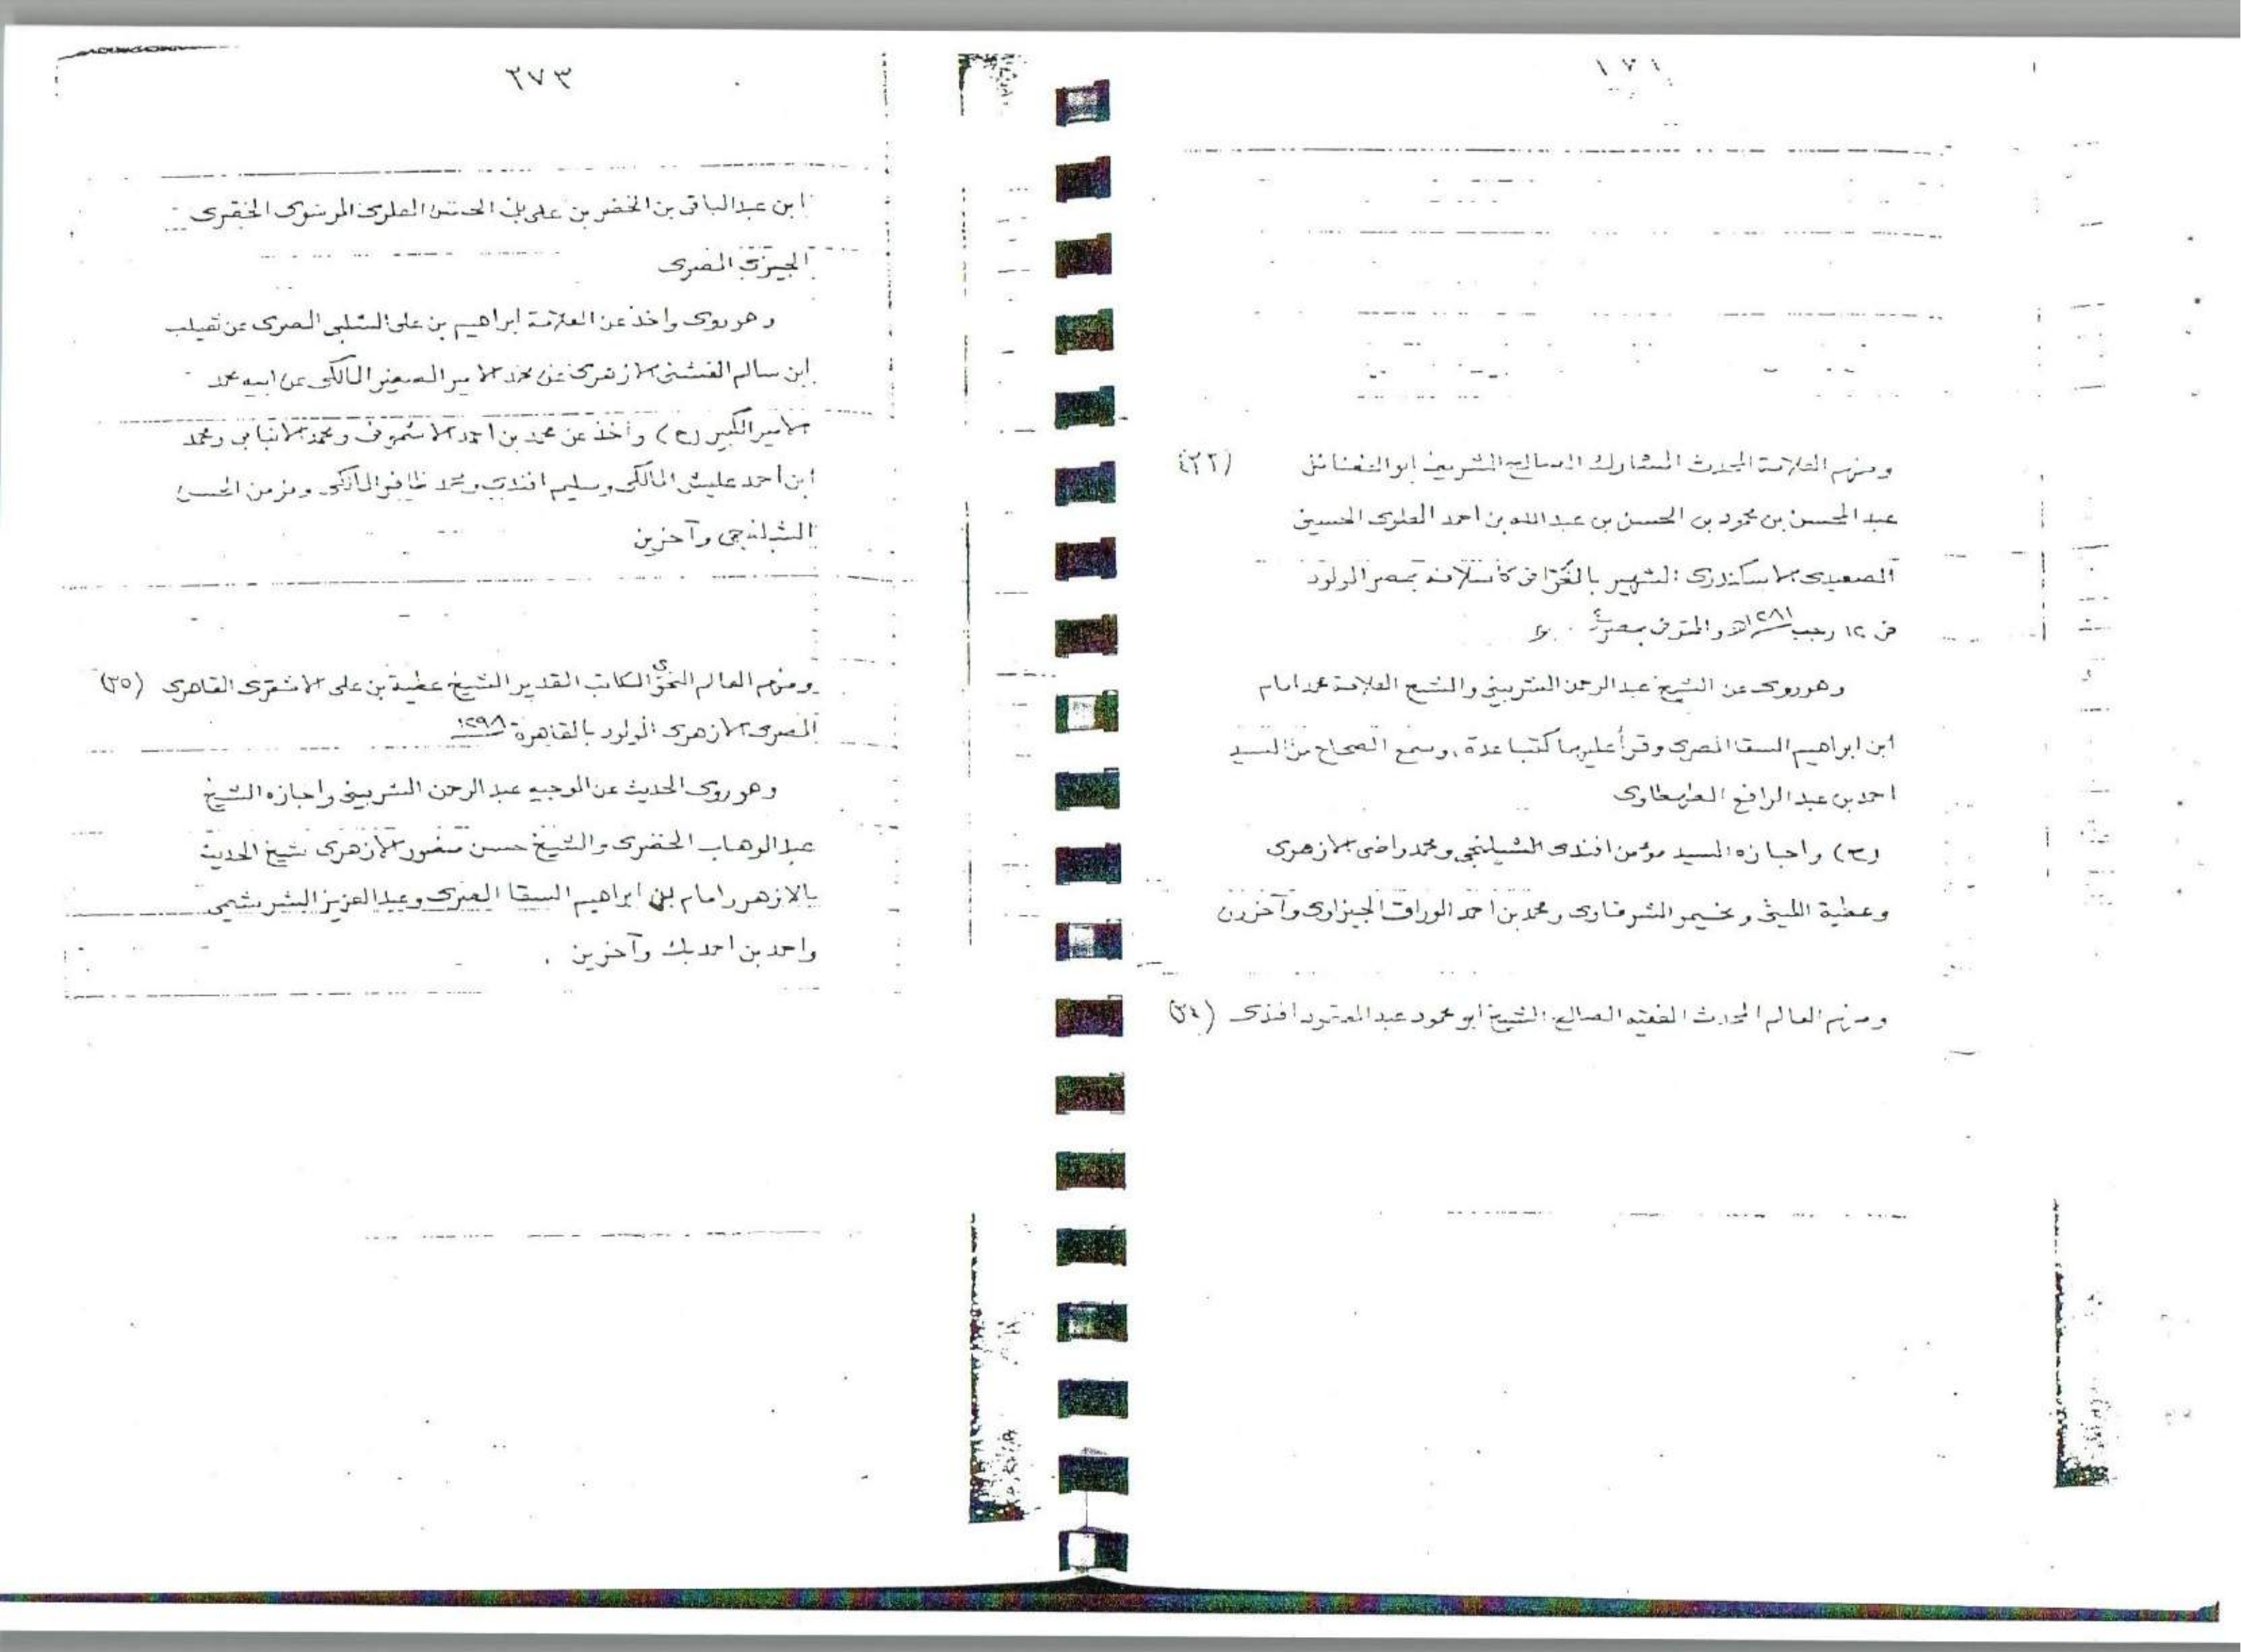 ومنهم العلامة المحدث المشارك الصالح الشريف ابو الفضائل
عبد المحسن بن محمود بن الحسن بن عبد الله بن احمد العلوى الحسينى
الصعيدى الاسكندرى الشهير كأسلافه بمصر المولود
فى ١٢ رجب ١٢٨١ والمتوفى بمصر
وهو روى عن الشيخ عبد الرحمن الشربينى والشيخ العلامة محمد امام
ابن ابراهيم السقا المصرى وقرأ عليهما كتبا عدة، وسمع الصحاح من السيد
احمد بن عبد الرافع الطهطاوى
(ح) واجازه السيد مؤمن افندى الشبلنجى ومحمد راضى الازهرى
وعطية الشرقاوى ومحمد بن احمد الوراق الجيزاوى وآخرون
ومنهم العالم المحدث الفقيه الصالح الشيخ ابو محمود عبد المعبود افندى (٣٤)
٣٧٣
ابن عبد الباقى بن الخضر بن على بن العلوى
الجيزى المصرى
وهو روى واخذ عن العلامة ابراهيم بن على الشلبى المصرى عن
ابن سالم الفشنى الازهرى عن محمد الامير الصغير المالكى عن ابيه محمد
الامير الكبير (ح) وأخذ عن محمد بن احمد الاشمونى ومحمد الانبابى ومحمد
ابن احمد عليش المالكى وسليم افندى ومحمد ظافر المالكى ومؤمن الحسن
الشبلنجى وآخرين
ومنهم العالم النحوى الكاتب القدير الشيخ عطية بن على الاشقرى القاهرى (٣٥)
المصرى الازهرى المولود بالقاهرة ١٢٩٨
وهو روى الحديث عن الوجيه عبد الرحمن الشربينى واجازه الشيخ
عبد الوهاب الخضرى والشيخ حسن منصور الازهرى شيخ الحديث
بالازهر وامام بن ابراهيم السقا المصرى وعبد العزيز
واحمد بن احمد بك وآخرين .